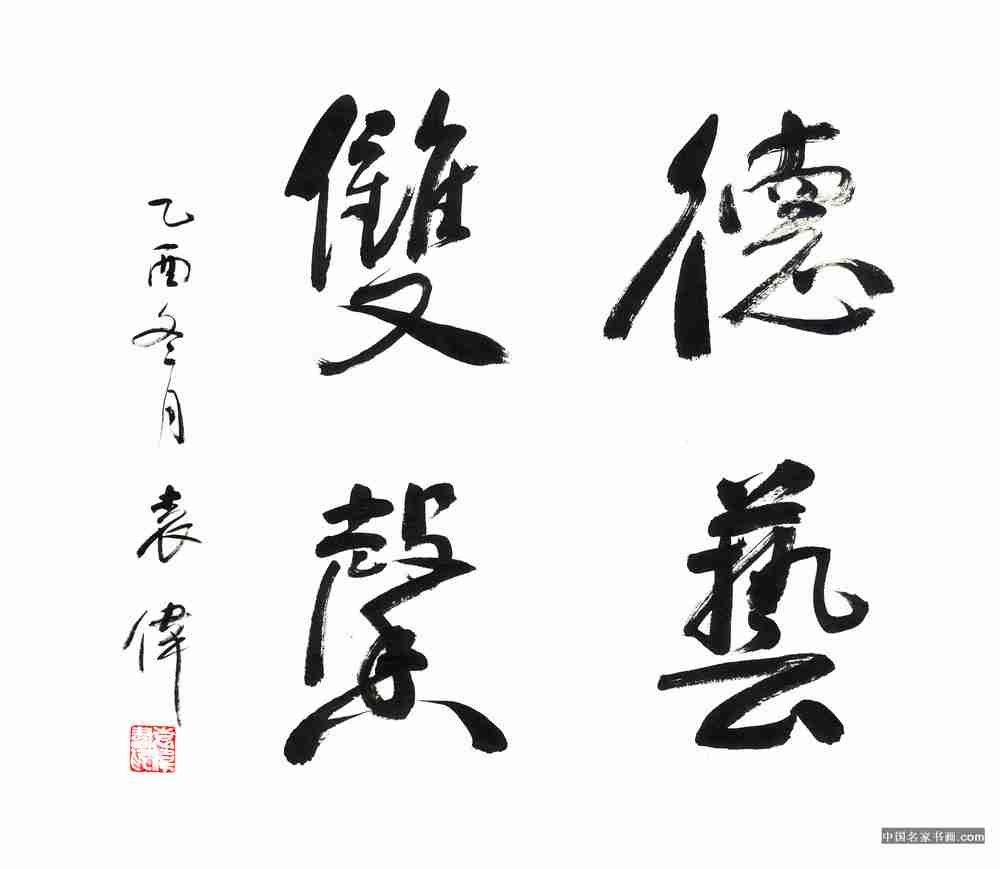 德藝
雙馨
乙酉冬月 袁偉
中国名家书画.com